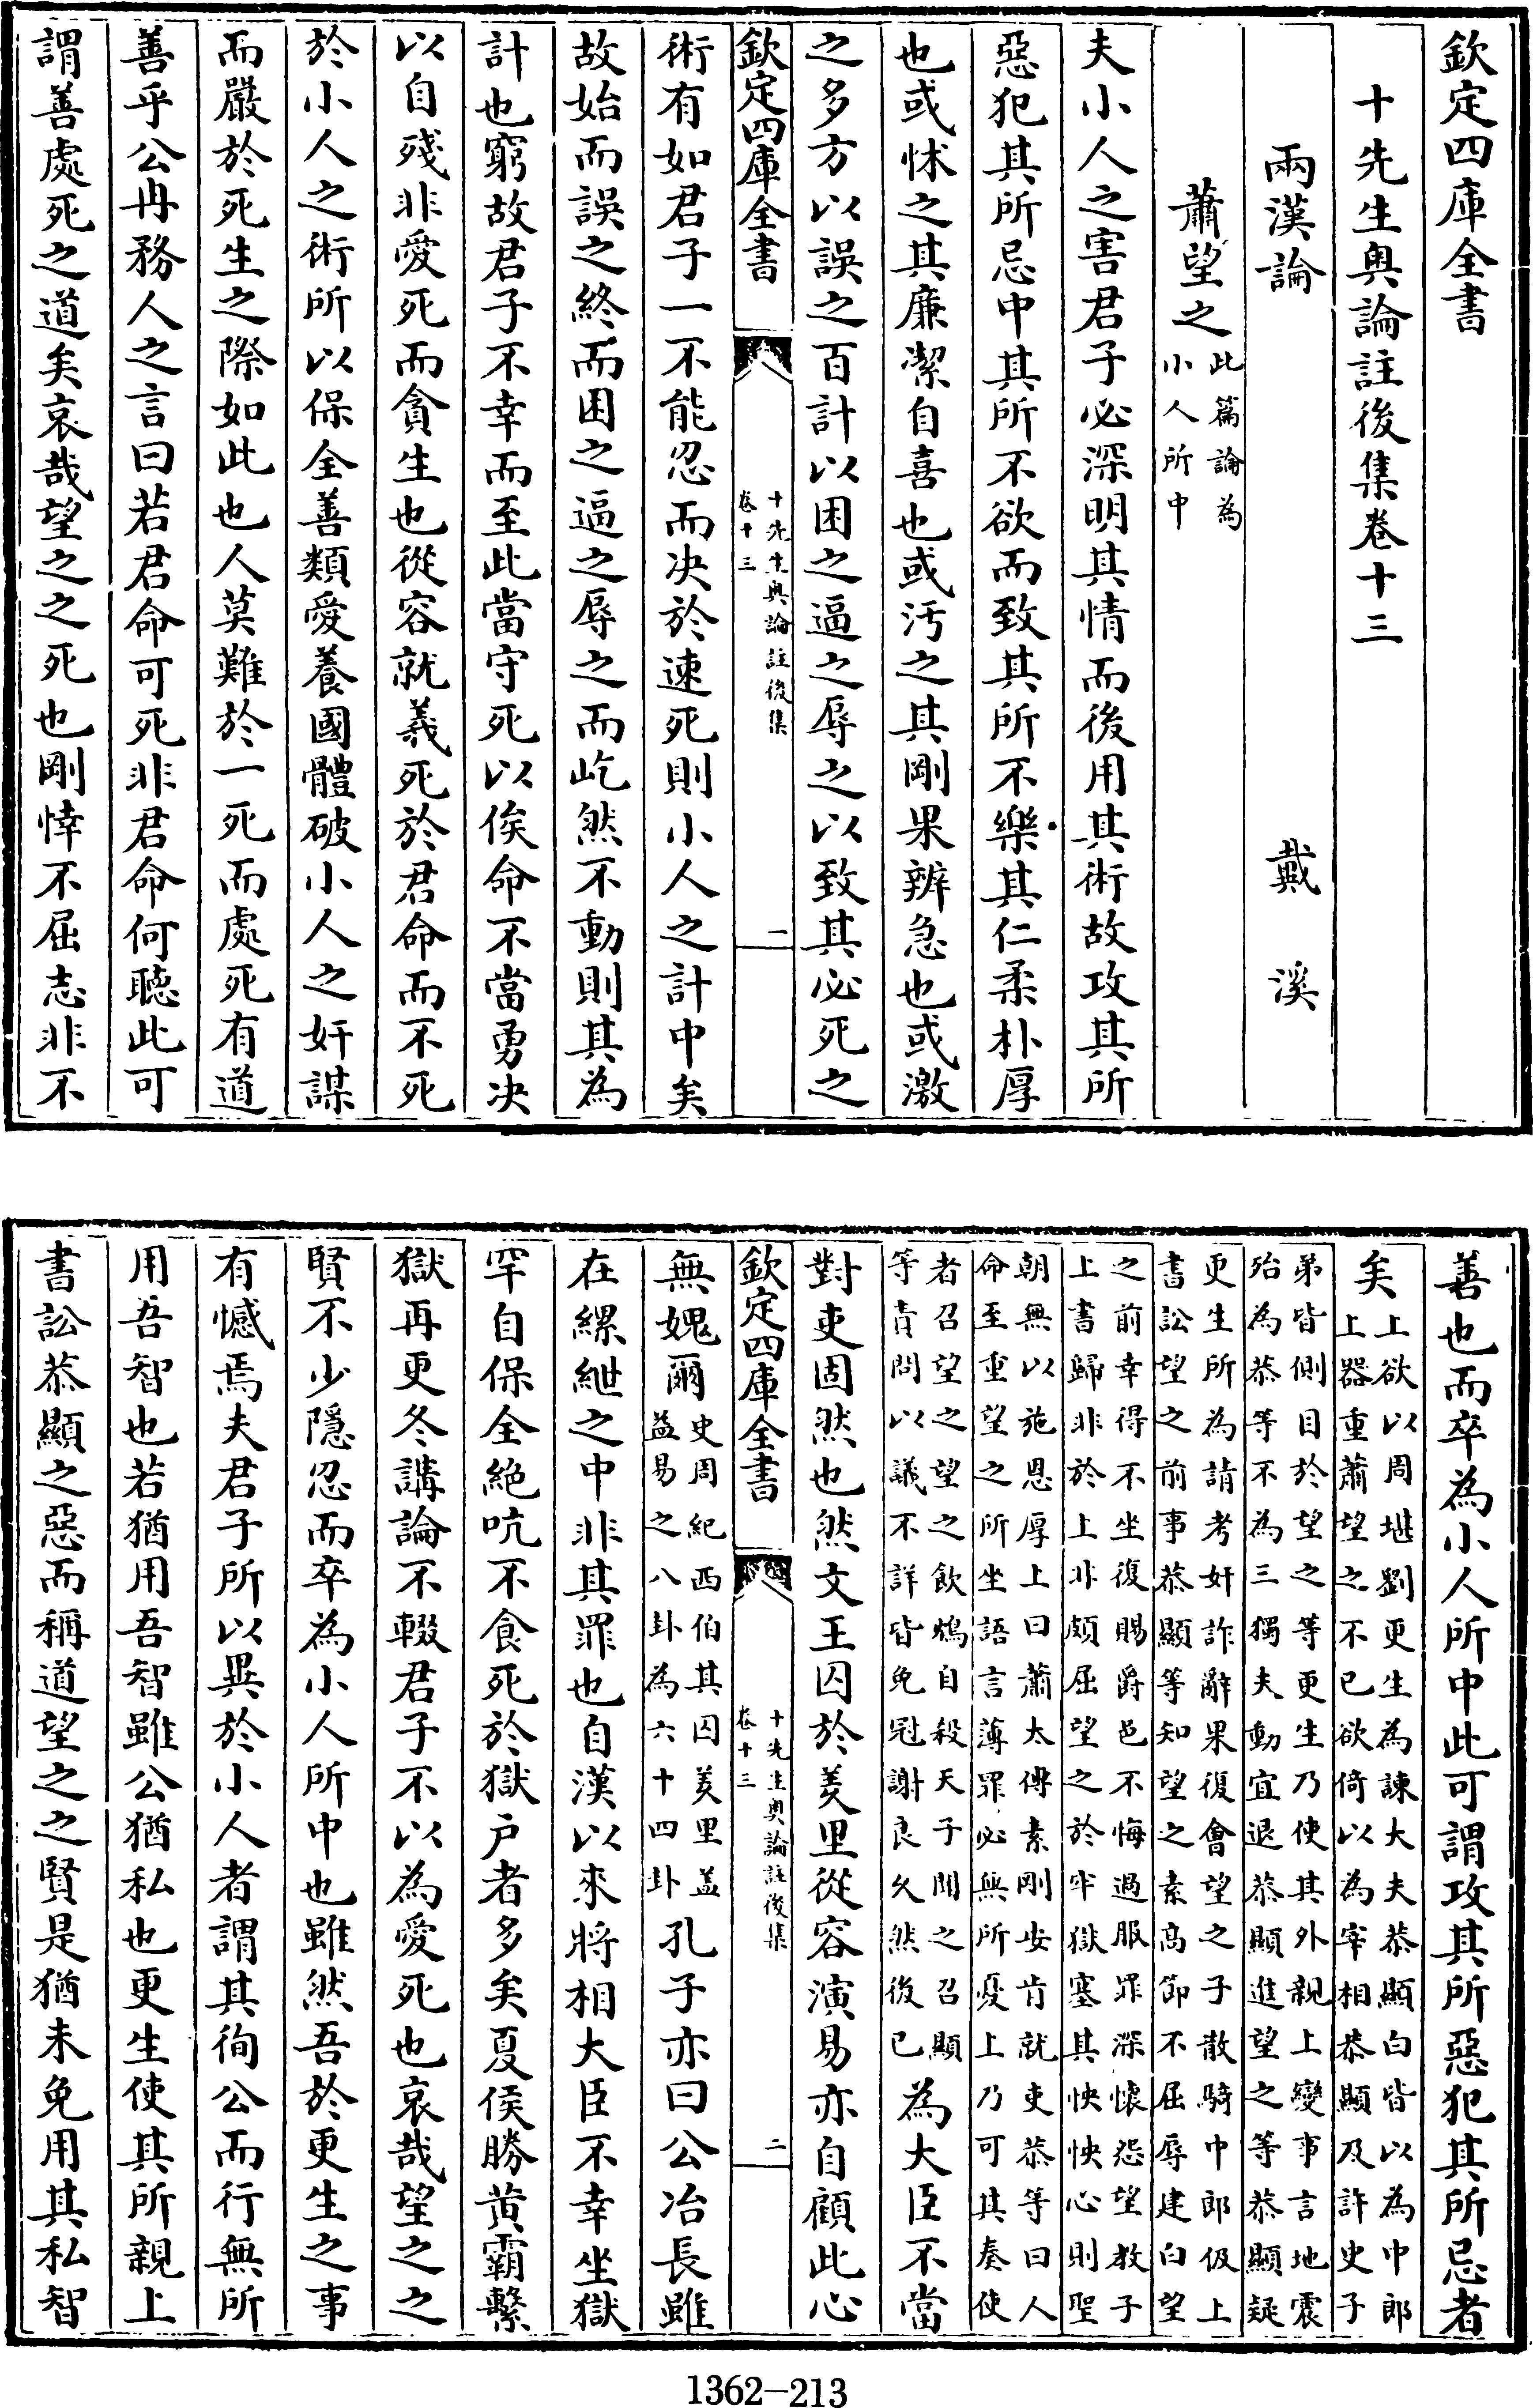 欽定四庫全書
十先生奥論註後集卷十三
兩漢論 戴溪
蕭望之此篇論為小人所中
夫小人之害君子必深明其情而後用其術故攻其所
惡犯其所忌中其所不欲而致其所不樂其仁柔朴厚
也或怵之其廉潔自喜也或汚之其剛果辨急也或激
之多方以誤之百計以困之逼之辱之以致其必死之
欽定四庫全書 十先生奥論註後集卷十三 一
術有如君子一不能忍而决於速死則小人之計中矣
故始而誤之終而困之逼之辱之而屹然不動則其為
計也窮故君子不幸而至此當守死以俟命不當勇决
以自殘非愛死而貪生也從容就義死於君命而不死
於小人之術所以保全善類愛養國體破小人之奸謀
而嚴於死生之際如此也人莫難於一死而處死有道
善乎公冉務人之言曰若君命可死非君命何聽此可
謂善處死之道矣哀哉望之之死也剛悻不屈志非不
善也而卒為小人所中此可謂攻其所惡犯其所忌者
矣上欲以周堪劉更生為諫大夫恭顯白皆以為中郎上器重蕭望之不已欲倚以為宰相恭顯及許史子
弟皆側目於望之等更生乃使其外親上變事言地震殆為恭等不為三獨夫動宜退恭顯進望之等恭顯疑
更生所為請考奸詐辭果復會望之子散騎中郎伋上書訟望之前事恭顯等知望之素高節不屈辱建白望
之前幸得不坐復賜爵邑不悔過服罪深懷怨望教子上書歸非於上非頗屈望之於牢獄塞其怏怏心則聖
朝無以施恩厚上曰蕭太傅素剛安肯就吏恭等曰人命至重望之所坐語言薄罪必無所憂上乃可其奏使
者召望之望之飲鴆自殺天子聞之召顯等責問以議不詳皆免冠謝良久然後已為大臣不當
對吏固然也然文王囚於羑里從容演易亦自顧此心
欽定四庫全書 十先生奥論註後集卷十三 二
無媿爾史周紀西伯其囚羑里盖益易之八卦為六十四卦孔子亦曰公冶長雖
在縲紲之中非其罪也自漢以來將相大臣不幸坐獄
罕自保全絶吭不食死於獄户者多矣夏侯勝黄霸繫
獄再更冬講論不輟君子不以為愛死也哀哉望之之
賢不少隱忍而卒為小人所中也雖然吾於更生之事
有憾焉夫君子所以異於小人者謂其徇公而行無所
用吾智也若猶用吾智雖公猶私也更生使其所親上
書訟恭顯之惡而稱道望之之賢是猶未免用其私智
1362-213